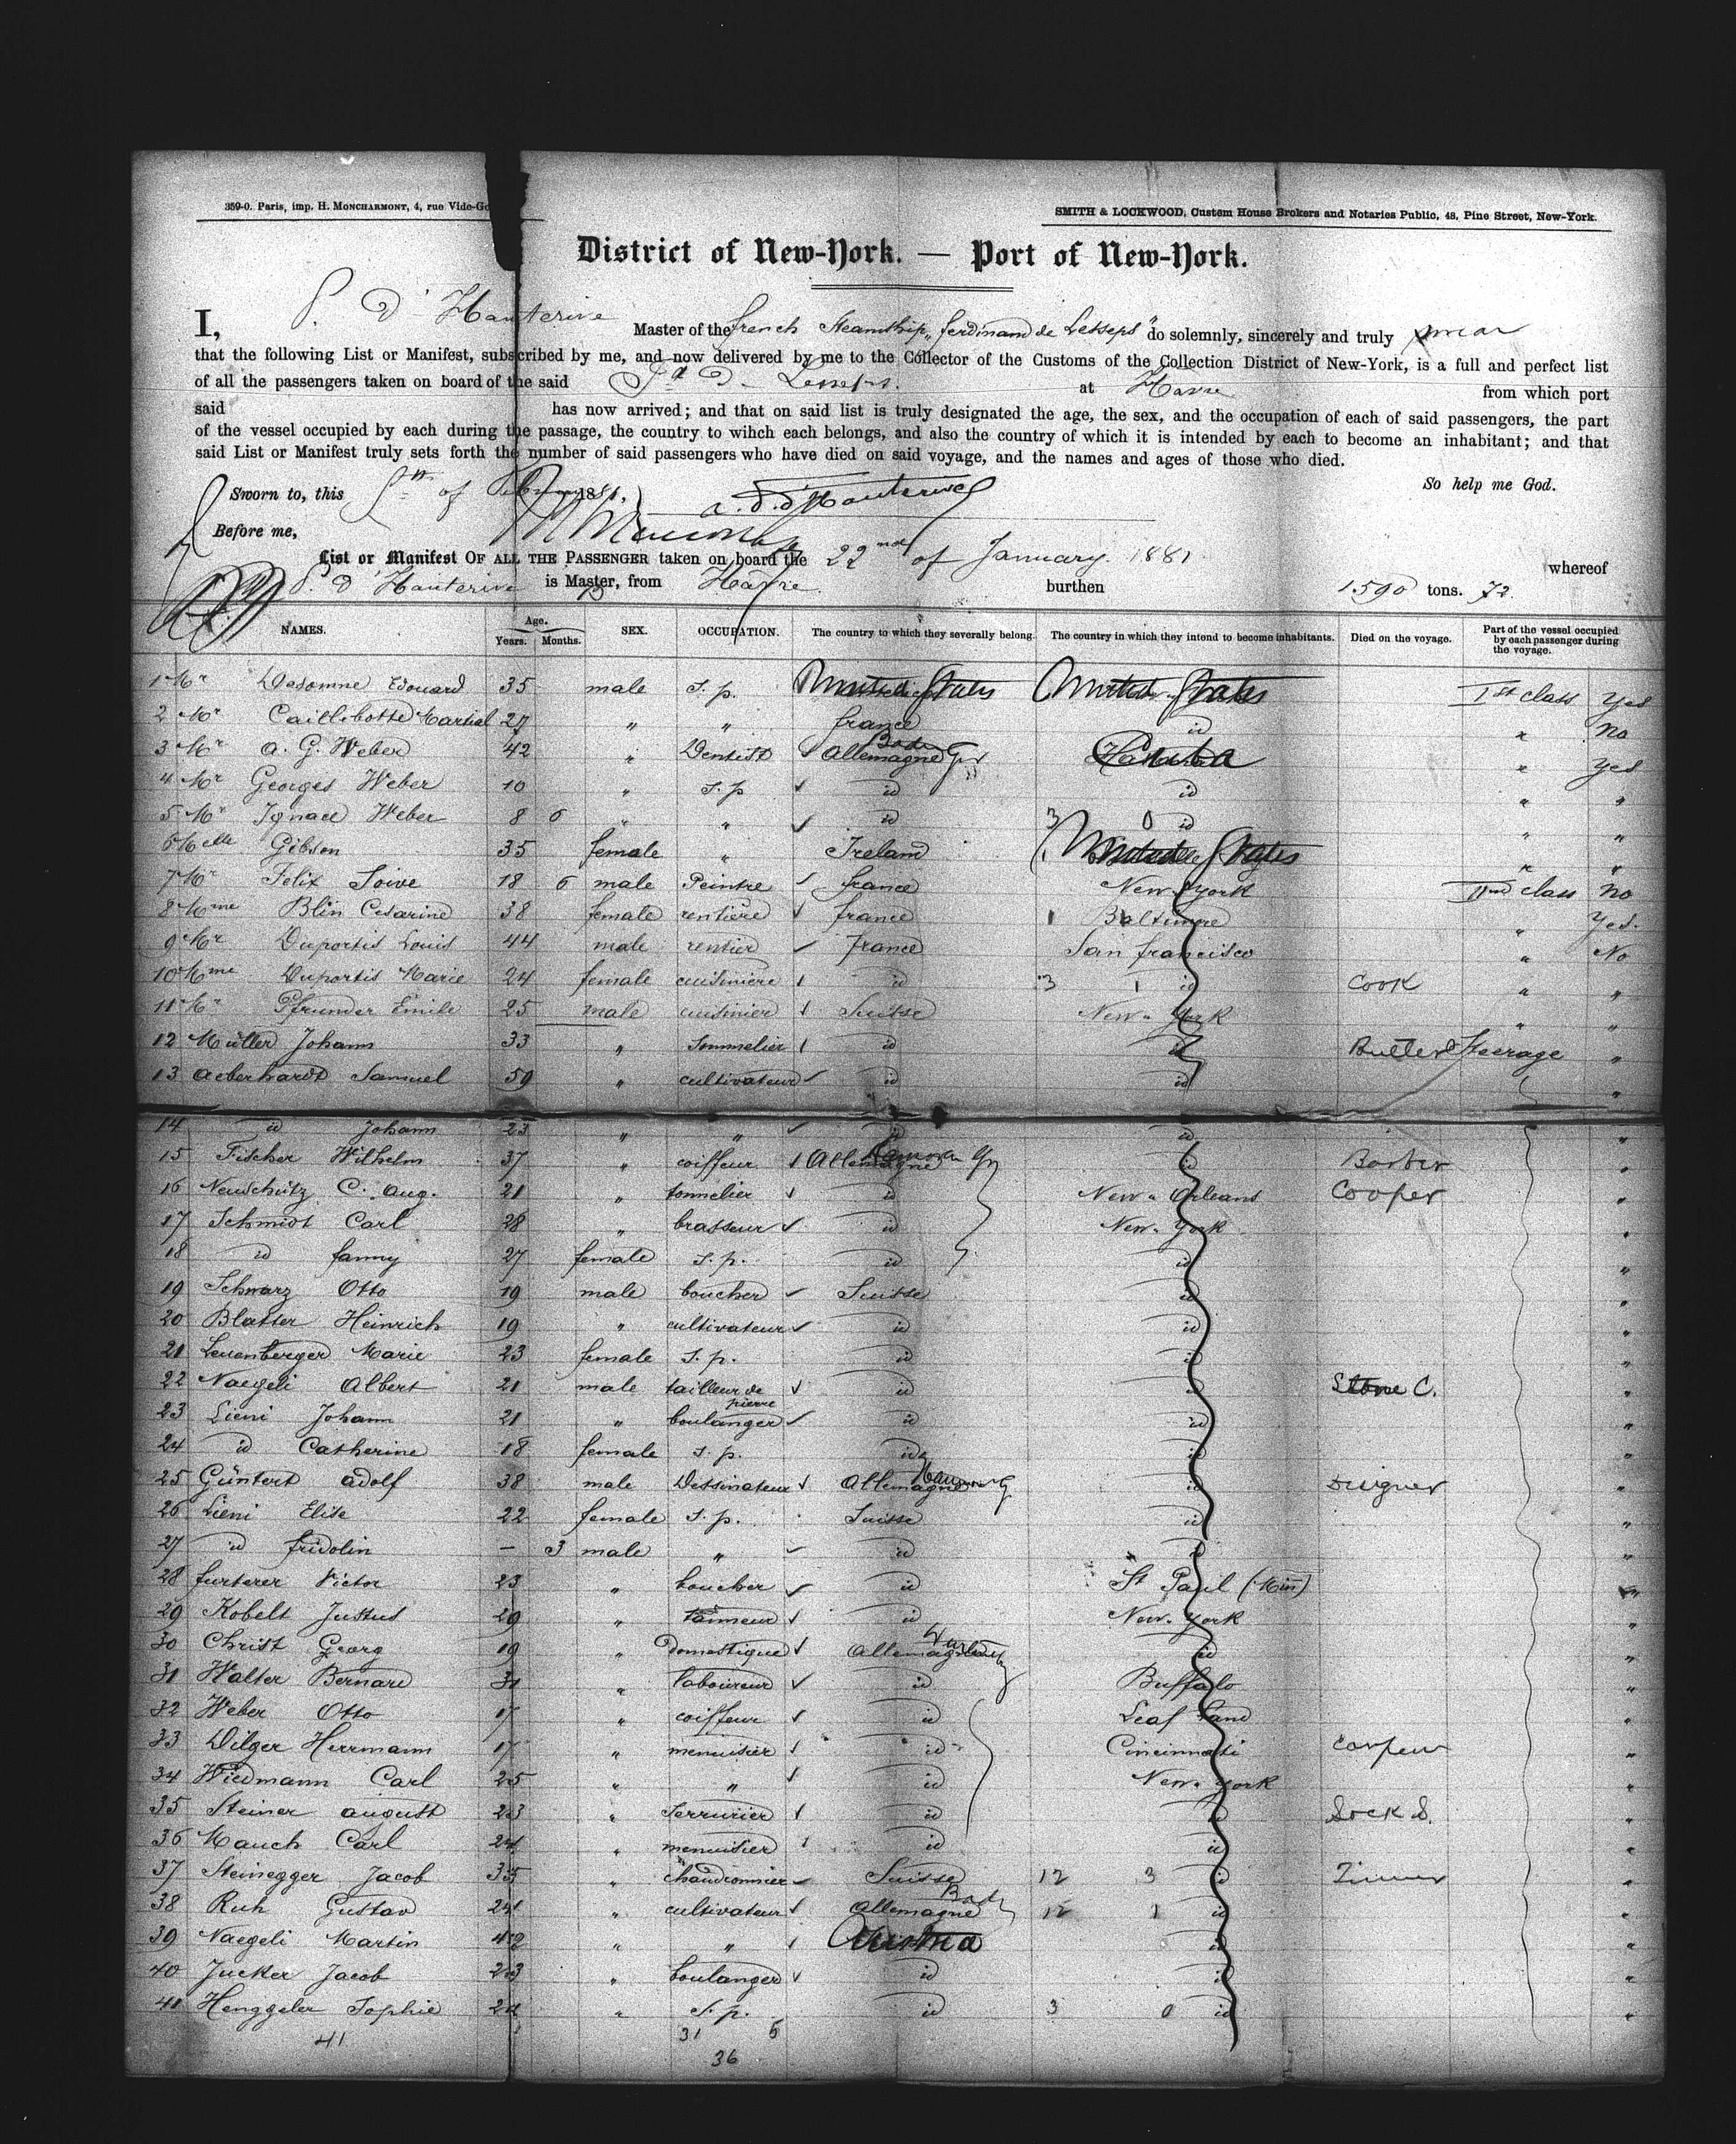 359-0. Paris, imp. H. MONCHARMONT, 4, rue Vide-Go
SMITH & LOCKWOOD, Custom House Brokers and Notaries Public, 48, Pine Street, New-York.
District of New-York. — Port of New-York.
I, P. D'Hauterive Master of the french Steamship „ferdinand de Lesseps" do solemnly, sincerely and truly swear
that the following List or Manifest, subscribed by me, and now delivered by me to the Collector of the Customs of the Collection District of New-York, is a full and perfect list
of all the passengers taken on board of the said Fd D. Lesseps. at Havre from which port
said has now arrived; and that on said list is truly designated the age, the sex, and the occupation of each of said passengers, the part
of the vessel occupied by each during the passage, the country to wihch each belongs, and also the country of which it is intended by each to become an inhabitant; and that
said List or Manifest truly sets forth the number of said passengers who have died on said voyage, and the names and ages of those who died.
Sworn to, this of 1881, So help me God.
Before me,
List or Manifest OF ALL THE PASSENGER taken on board the 22nd of January 1881 whereof
P. d'Hauterive is Master, from Havre burthen 1590 tons. 72.
NAMES. Age. Years. Months. SEX. OCCUPATION. The country to which they severally belong. The country in which they intend to become inhabitants. Died on the voyage. Part of the vessel occupied by each passenger during the voyage.
1 Mr Desomne Edouard 35 male S. p. United States United States Ist class Yes
2 Mr Caillebotte Martial 27 " " france id " No
3 Mr A. G. Weber 42 " Dentist Allemagne Baden Gr Cuba " Yes
4 Mr Georges Weber 10 " S. p id id " "
5 Mr Ignace Weber 8 6 " " id 3 0 id " "
6 Melle Gibson 35 female " Ireland United States " "
7 Mr Felix Soive 18 6 male Peintre france New York IInd class No
8 Mme Blin Cesarine 38 female rentière france 1 Baltimore " Yes.
9 Mr Duportis Louis 44 male rentier france San francisco " No
10 Mme Duportis Marie 24 female cuisiniere id 3 1 id Cook " "
11 Mr Pfrunder Emile 25 male cuisinier Suisse New-York " "
12 Müller Johann 33 " Sommelier id id Butler Steerage "
13 Aeberhardt Samuel 59 " cultivateur id id "
14 id Johann 23 " " id id "
15 Fischer Wilhelm 37 " coiffeur Allemagne Hanover Gr id Barber "
16 Neuschütz C. Aug. 21 " tonnelier id New-Orleans Cooper "
17 Schmidt Carl 28 " brasseur id New-York "
18 id fanny 27 female S. p. id id "
19 Schwarz Otto 19 male boucher Suisse id "
20 Blatter Heinrich 19 " cultivateur id id "
21 Leuenberger Marie 23 female S. p. id id "
22 Naegeli Albert 21 male tailleur de pierre id id Stone C. "
23 Lieni Johann 21 " boulanger id id "
24 id Catherine 18 female S. p. id id "
25 Güntert Adolf 38 male Dessinateur Allemagne id Designer "
26 Lieni Elise 22 female S. p. Suisse id "
27 id fridolin - 3 male " id id "
28 furterer Victor 23 " boucher id St Paul (Min) "
29 Kobelt Justus 29 " tanneur id New-York "
30 Christ Georg 19 " domestique Allemagne id "
31 Walter Bernard 31 " laboureur id Buffalo "
32 Weber Otto 17 " coiffeur id Leaf Land "
33 Dilger Herrmann 17 " menuisier id Cincinnati "
34 Wiedmann Carl 25 " " id New-York "
35 Steiner August 23 " Serrurier id id Lock S. "
36 Mauch Carl 24 " menuisier id id "
37 Steinegger Jacob 35 " chaudronnier Suisse 12 3 id "
38 Ruh Gustav 24 " cultivateur Allemagne Baden 12 1 id "
39 Naegeli Martin 42 " " Austria id "
40 Jucker Jacob 23 " boulanger id id "
41 Henggeler Sophie 24 " S. p. id 3 0 id "
41 31 5
36